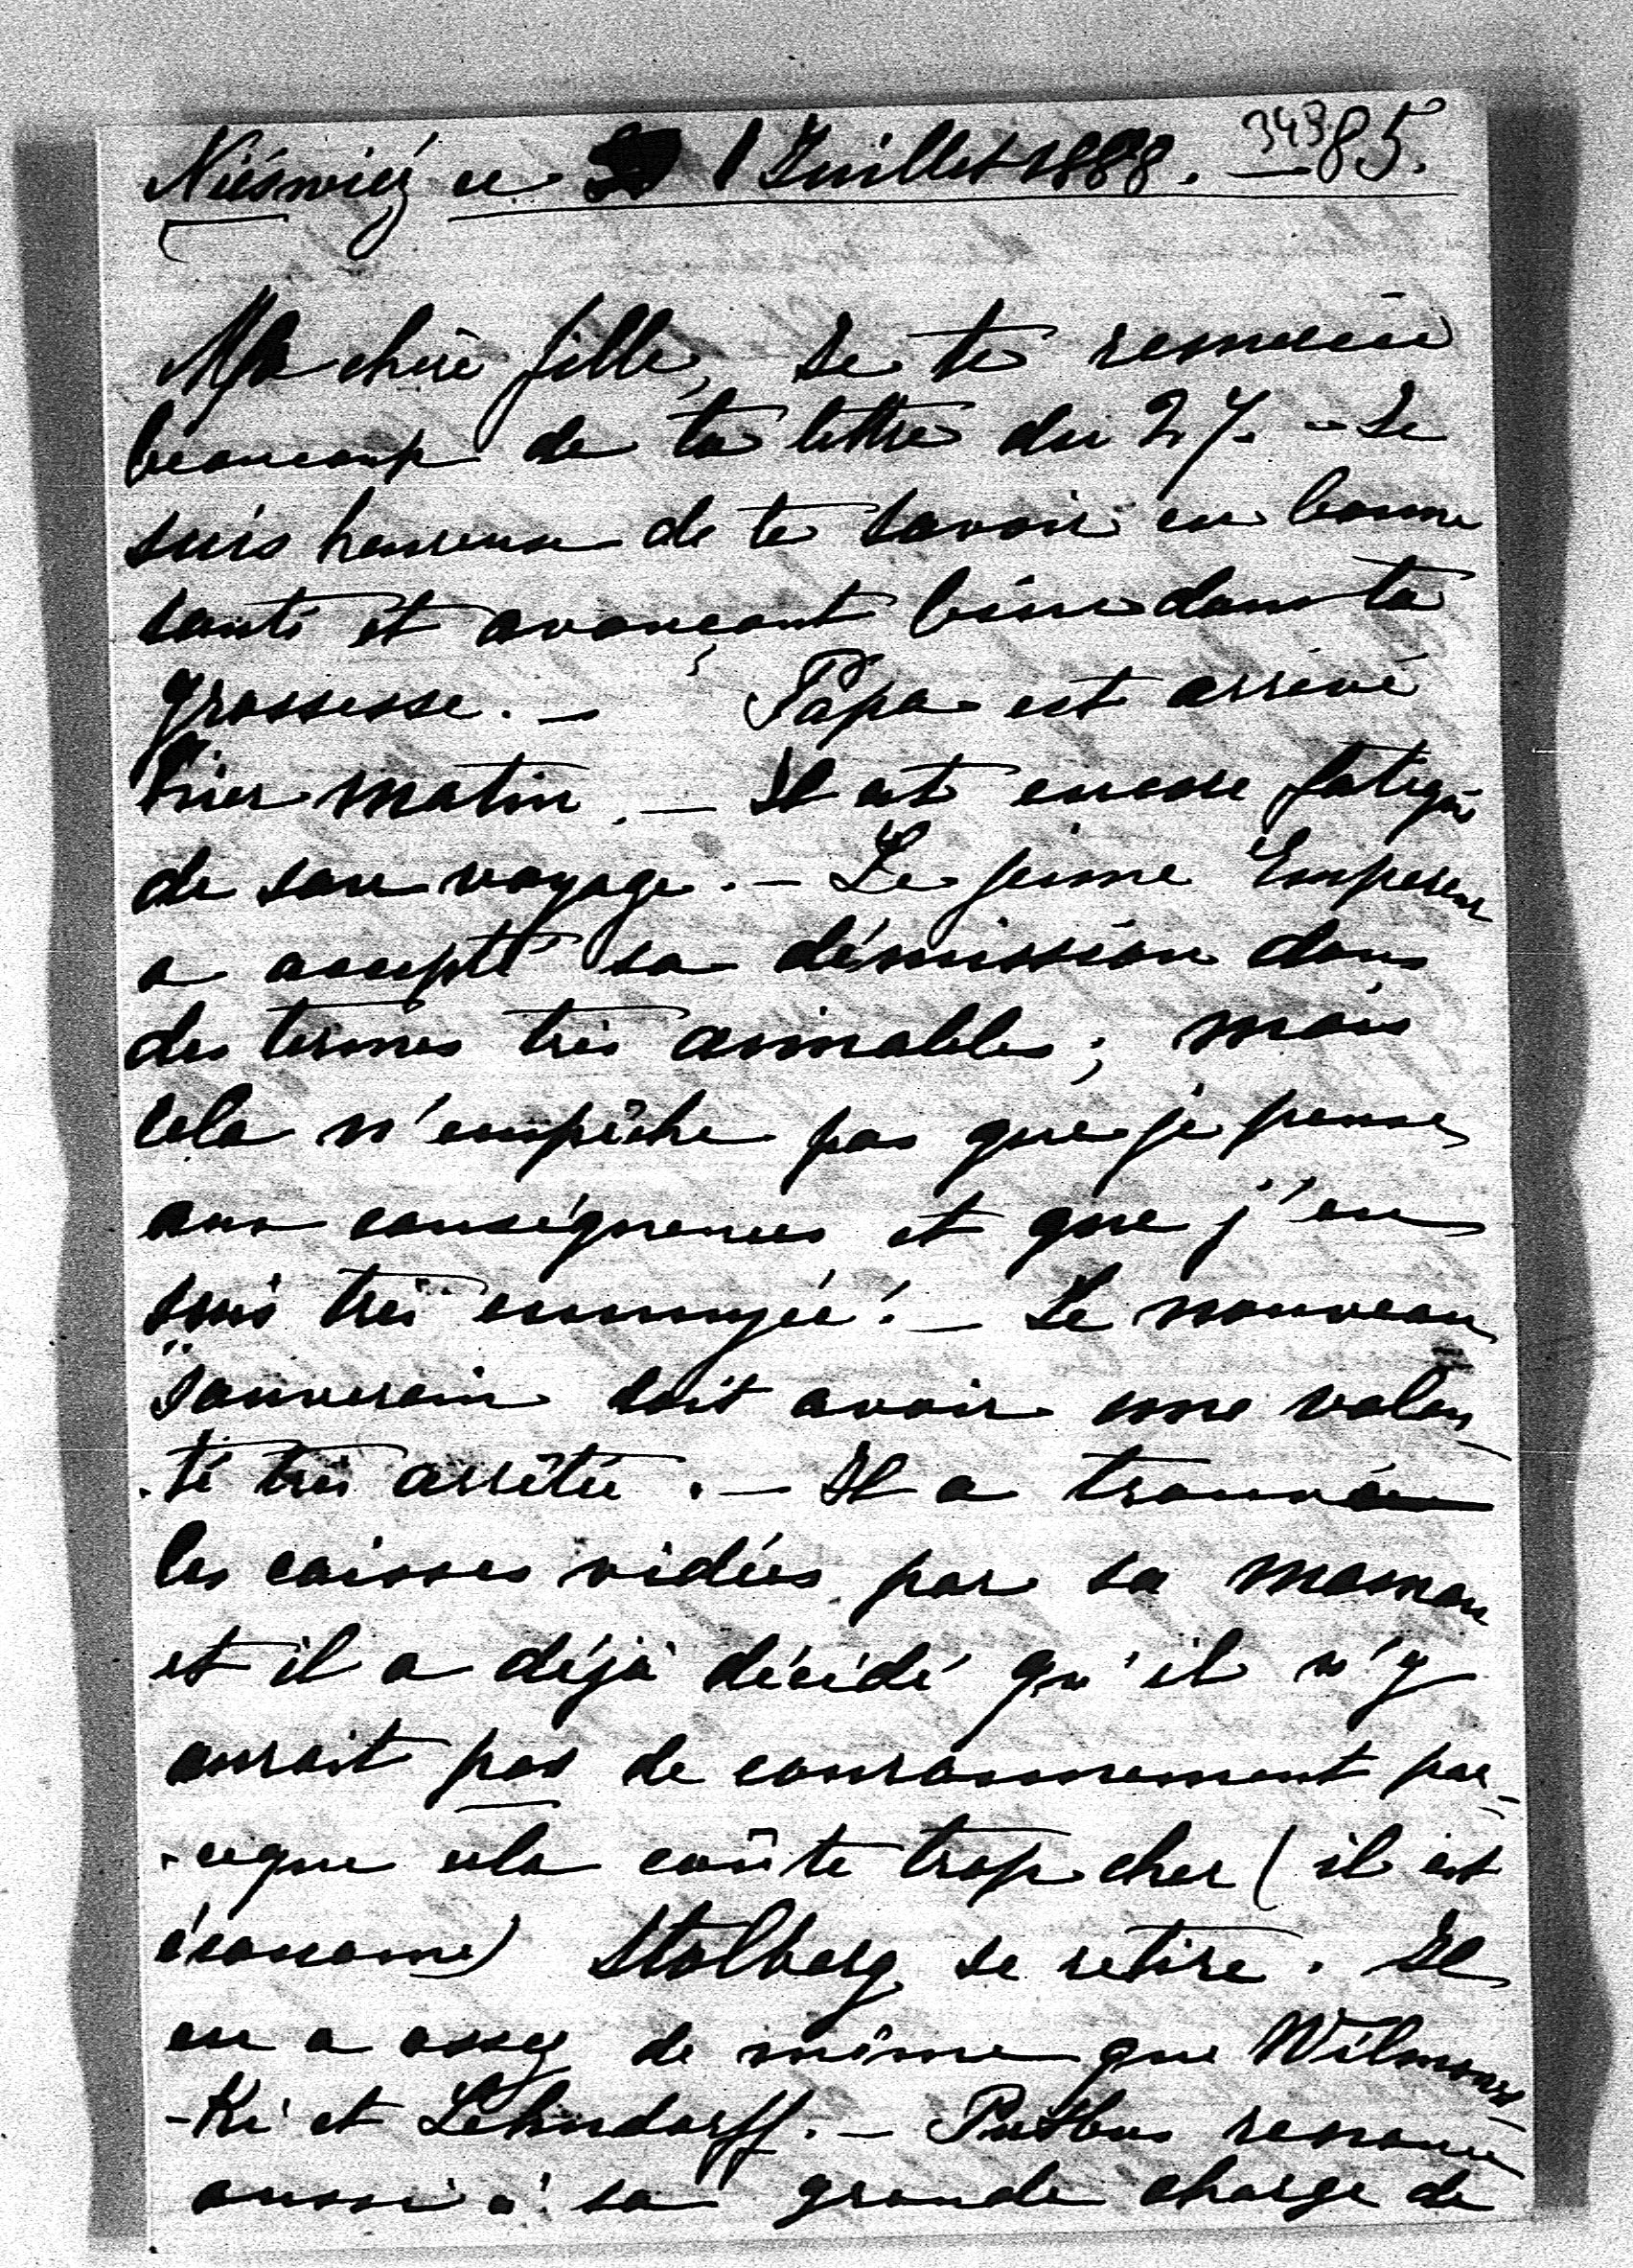 Nieświéż ce 1 Juillet 1888. 343 85.
Ma chère fille, Je te remercie
beaucoup de ta lettre du 27. - Je
suis heureuse de te savoir en bonne
santé et avançant bien dans ta
grossesse. - Papa est arrivé
hier matin. - Il est encore fatigué
de son voyage. - Le jeune Empereur
a accepté sa démission dans
des termes très aimables; mais
cela n'empêche pas que je pense
aux conséquences et que j'en
suis très ennuyée! - Le nouveau
souverain doit avoir une volon
-té très arrêtée. - Il a trouvé
les caisses vidées par sa maman
et il a déjà décidé qu'il n'y
aurait pas de couronnement par-
-ceque cela coûte trop cher (il est
économe) Stolberg se retire. Il
en a assez de même que Wilmows-
-Ki et Lehndorff. - Putbus renonce
aussi à sa grande charge de